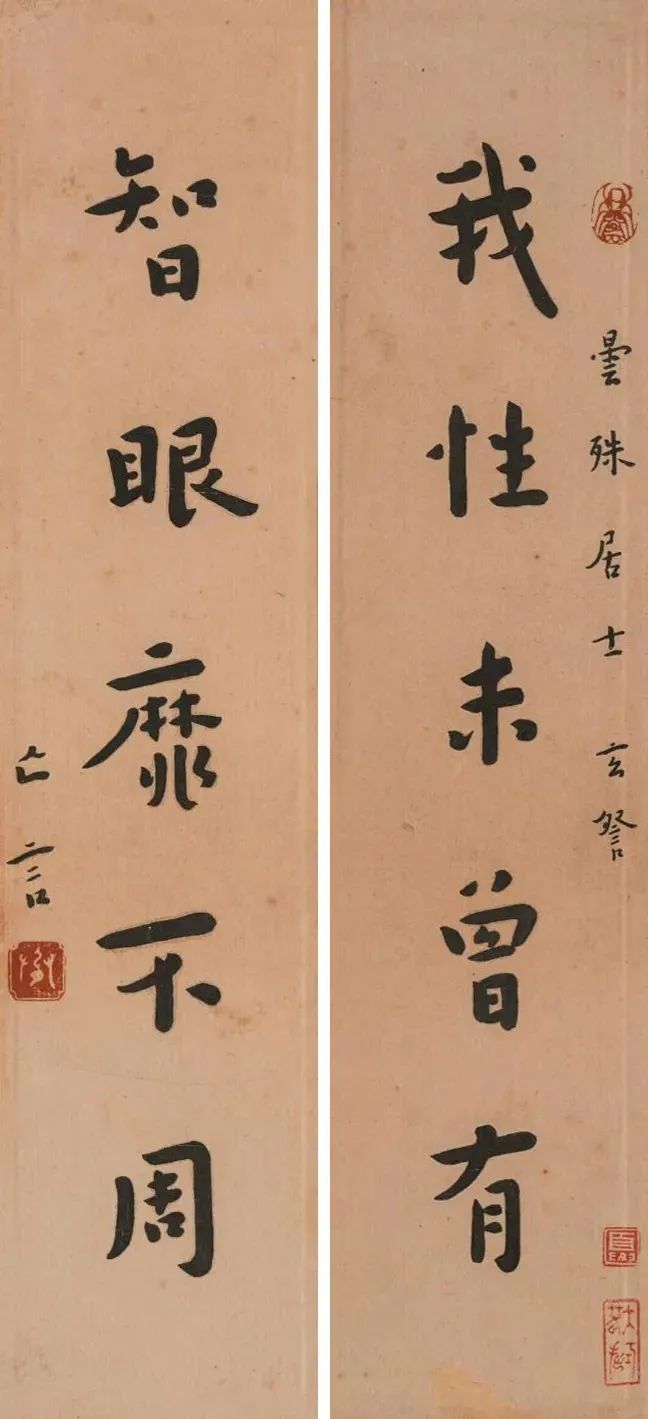 曇殊居士玄詧
我性未曾有
智眼靡不周
亡言